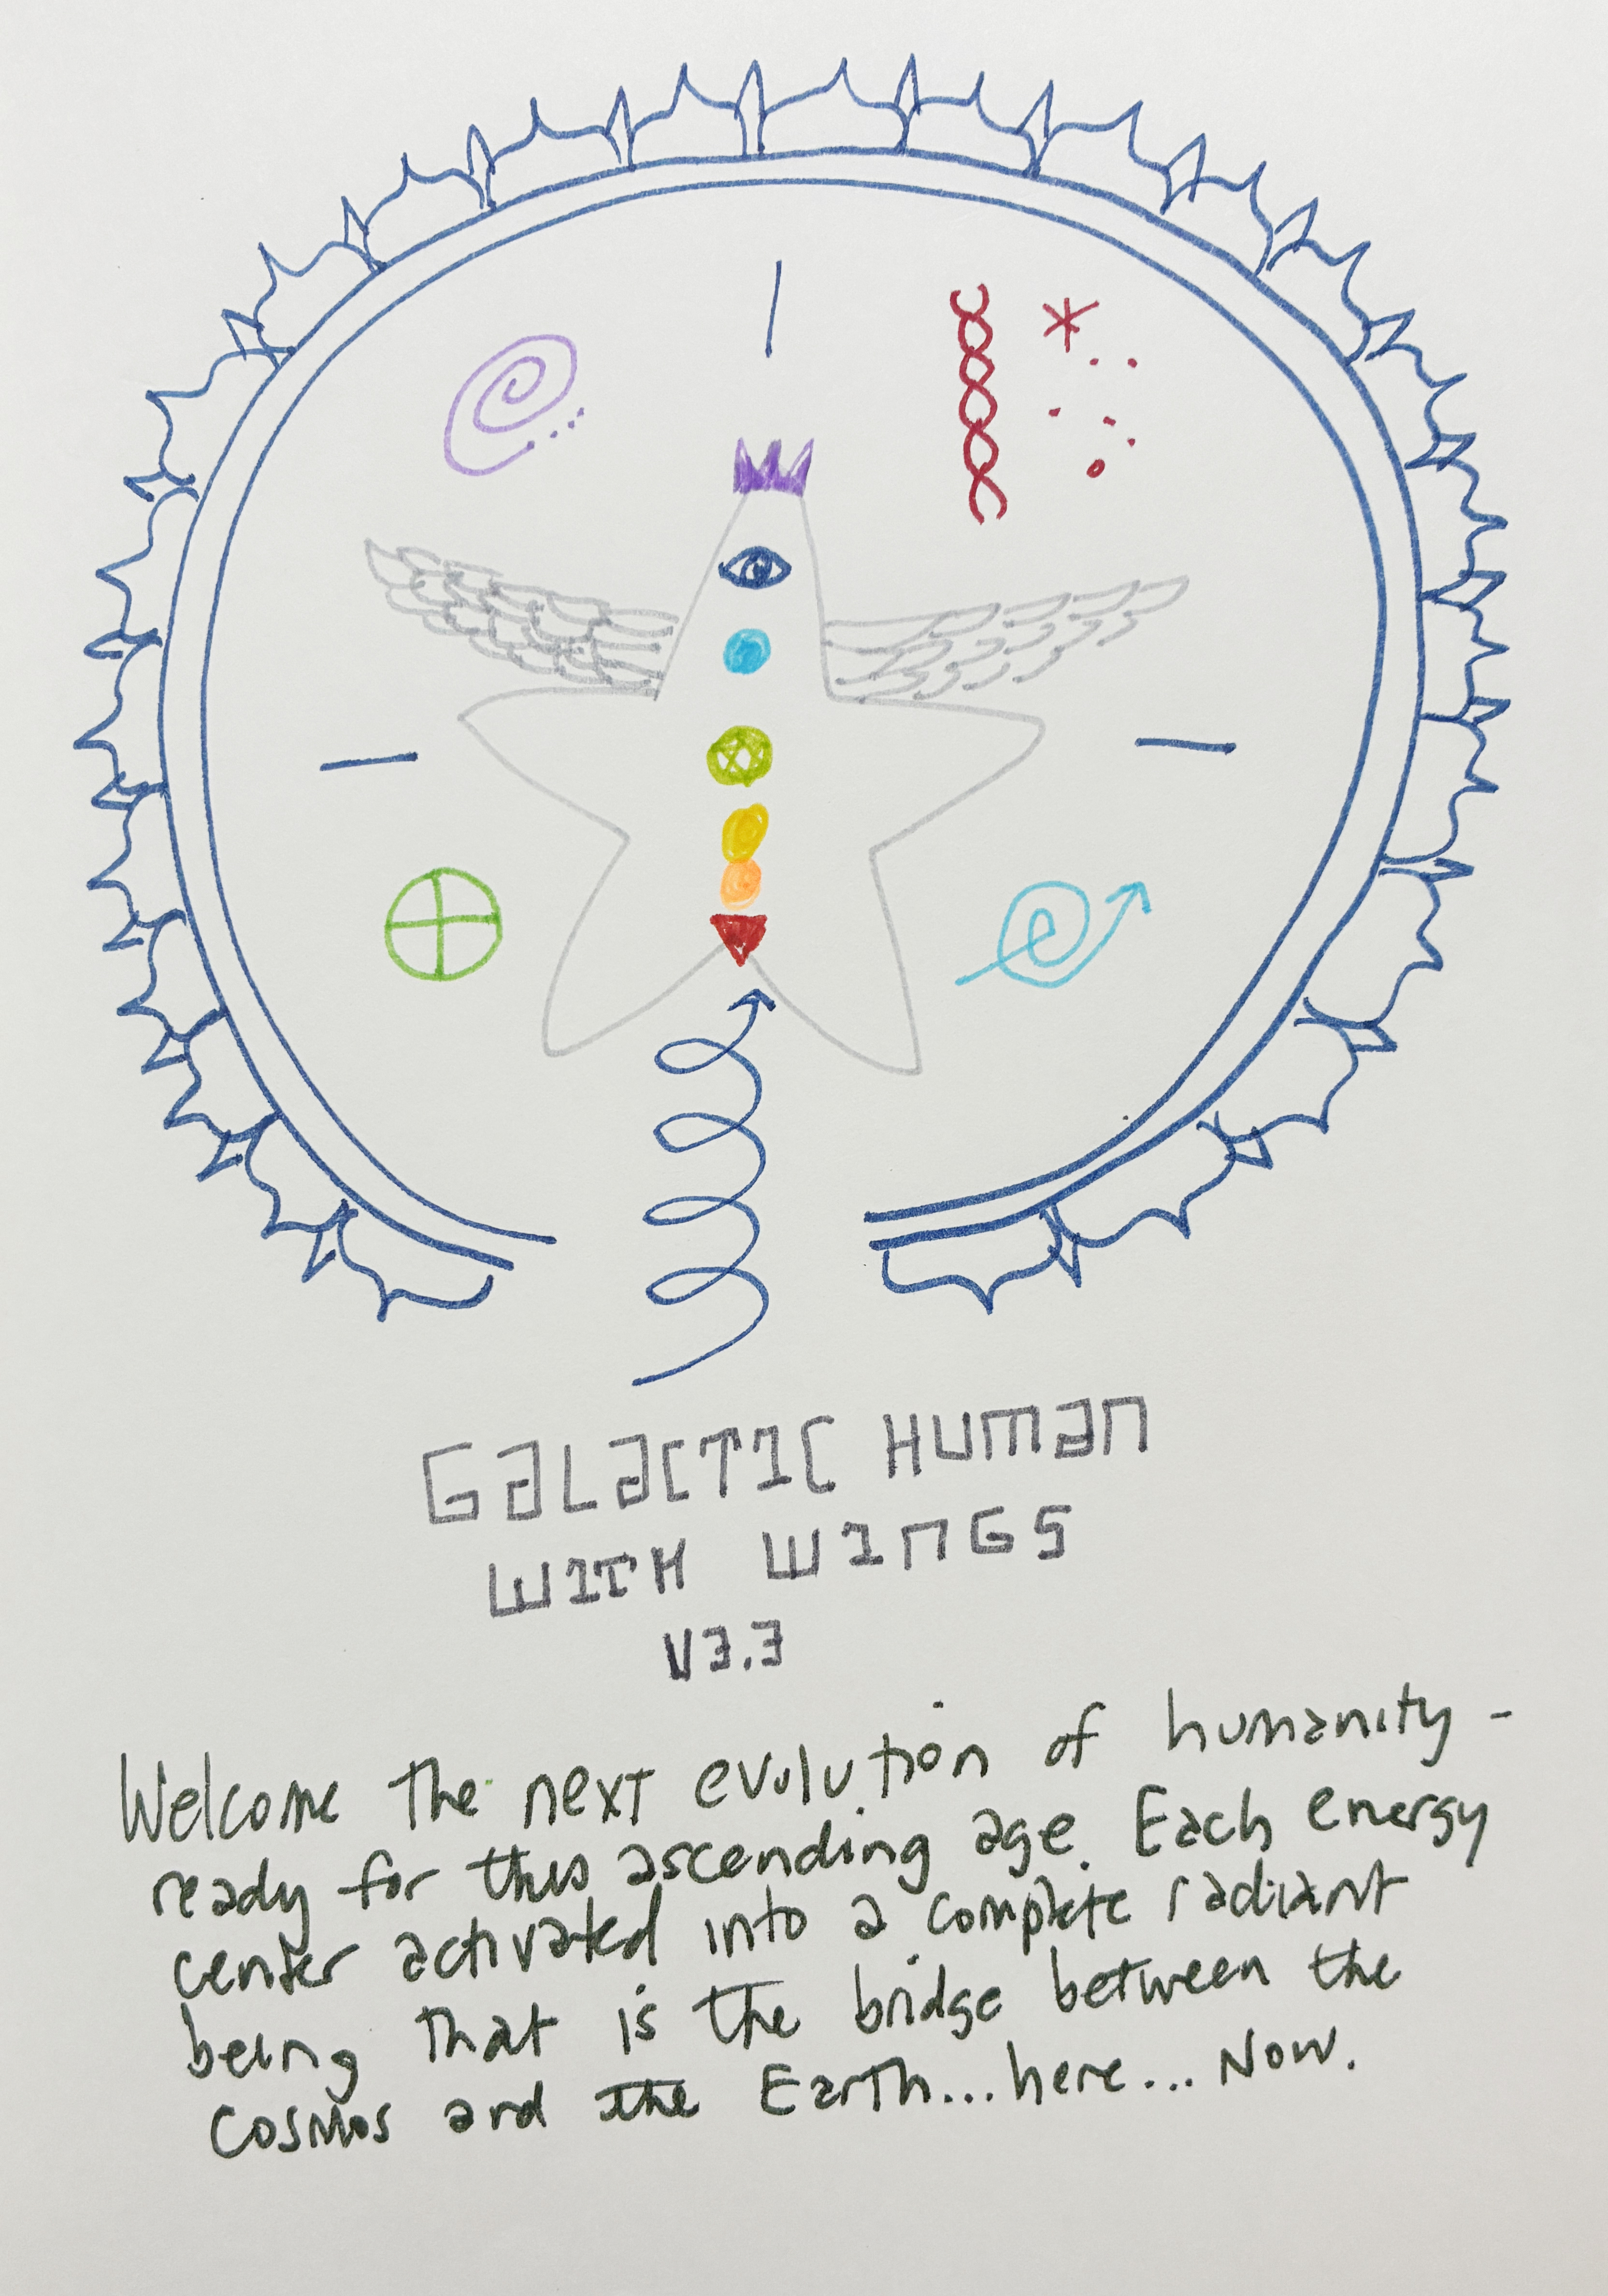 GALACTIC HUMAN
WITH WINGS
V3.3
Welcome the next evolution of humanity -
ready for this ascending age. Each energy
center activated into a complete radiant
being that is the bridge between the
Cosmos and the Earth... here... Now.